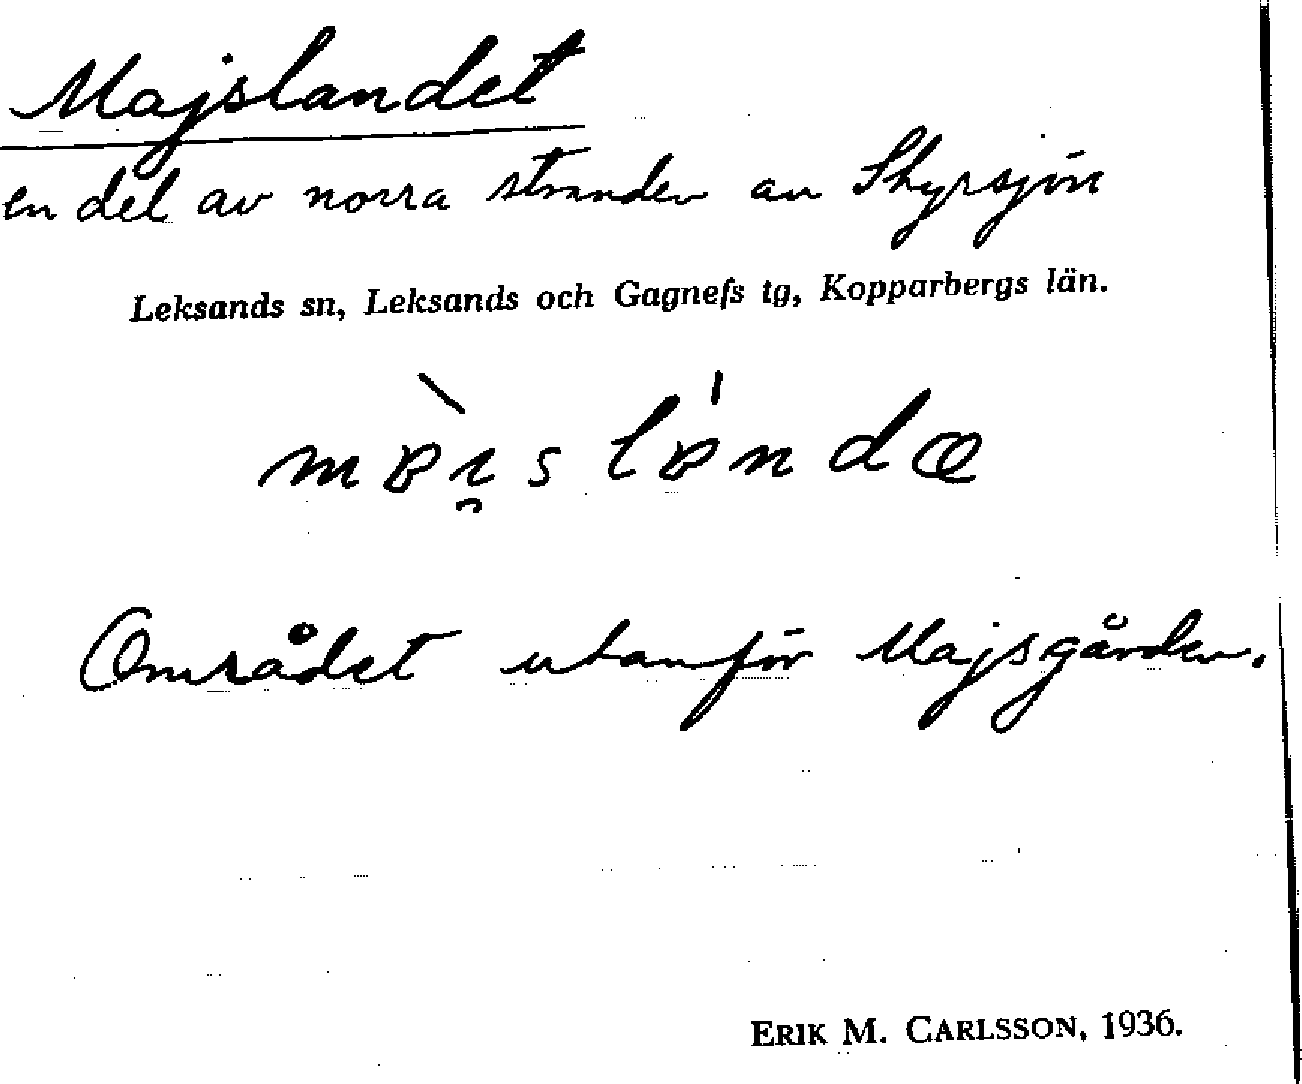 Majslandet
en del av norra stranden av Styrsjön
Leksands sn, Leksands och Gagnefs tg, Kopparbergs län.
Området utanför Majsgården.
ERIK M. CARLSSON, 1936.